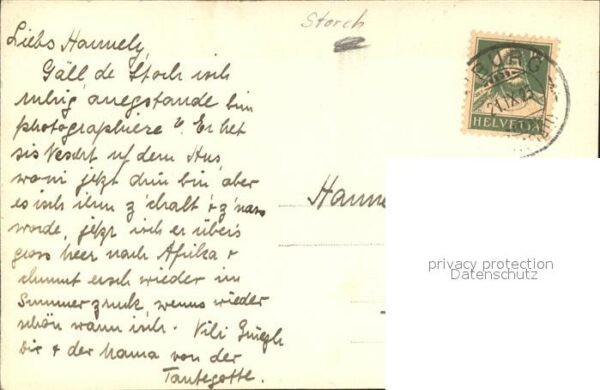 Storch
Liebs Hannely,
Gäll, de Storch isch
ruhig anegstande bim
photographiere? Er het
sis Nescht uf dem Hus
woni jetzt drin bin, aber
es isch ihm z'chalt + z'nass
worde, jetz isch er übers
gross Meer nach Afrika +
chunnt ersch wieder im
Summer zruck, wenns wieder
schön warm isch. Vili Grüessli
Dir + der Mama von der
Tantegotte.
BURG
21.IX.
HELVETIA
Hanne
privacy protection
Datenschutz